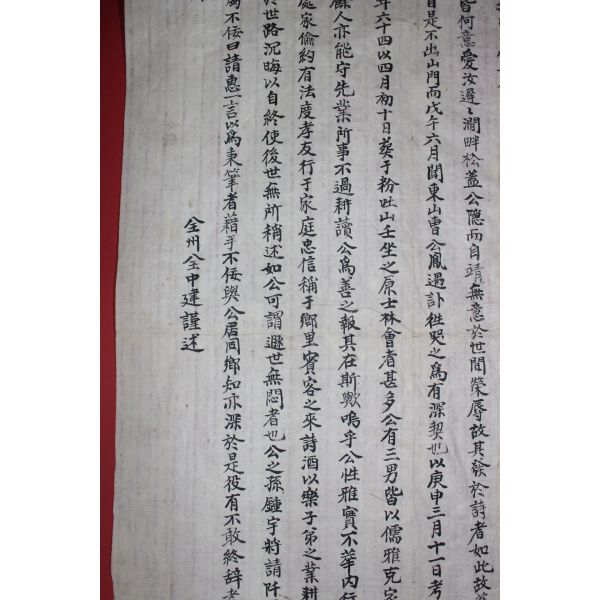 皆何意愛汝遲〻澗畔松蓋公隱而自靖無意於世間榮辱故其發於詩者如此故
自是不出山門而戊午六月聞東山曺公鳳遇訃徃哭之爲有深契也以庚申三月十一日考
年六十四以四月初十日葬于粉吐山壬坐之原士林會者甚多公有三男皆以儒雅克
餘人亦能守先業所事不過耕讀公爲善之報其在斯歟嗚乎公性雅實不華內行
處家儉約有法度孝友行于家庭忠信稱于鄕里賓客之來詩酒以樂子弟之業耕
於世路沉晦以自終使後世無所稱述如公可謂遯世無悶者也公之孫鍾宇將請阡
屬不佞曰請惠一言以爲秉筆者藉手不佞與公居同鄕知亦深於是役有不敢終辭者
全州全中建謹述